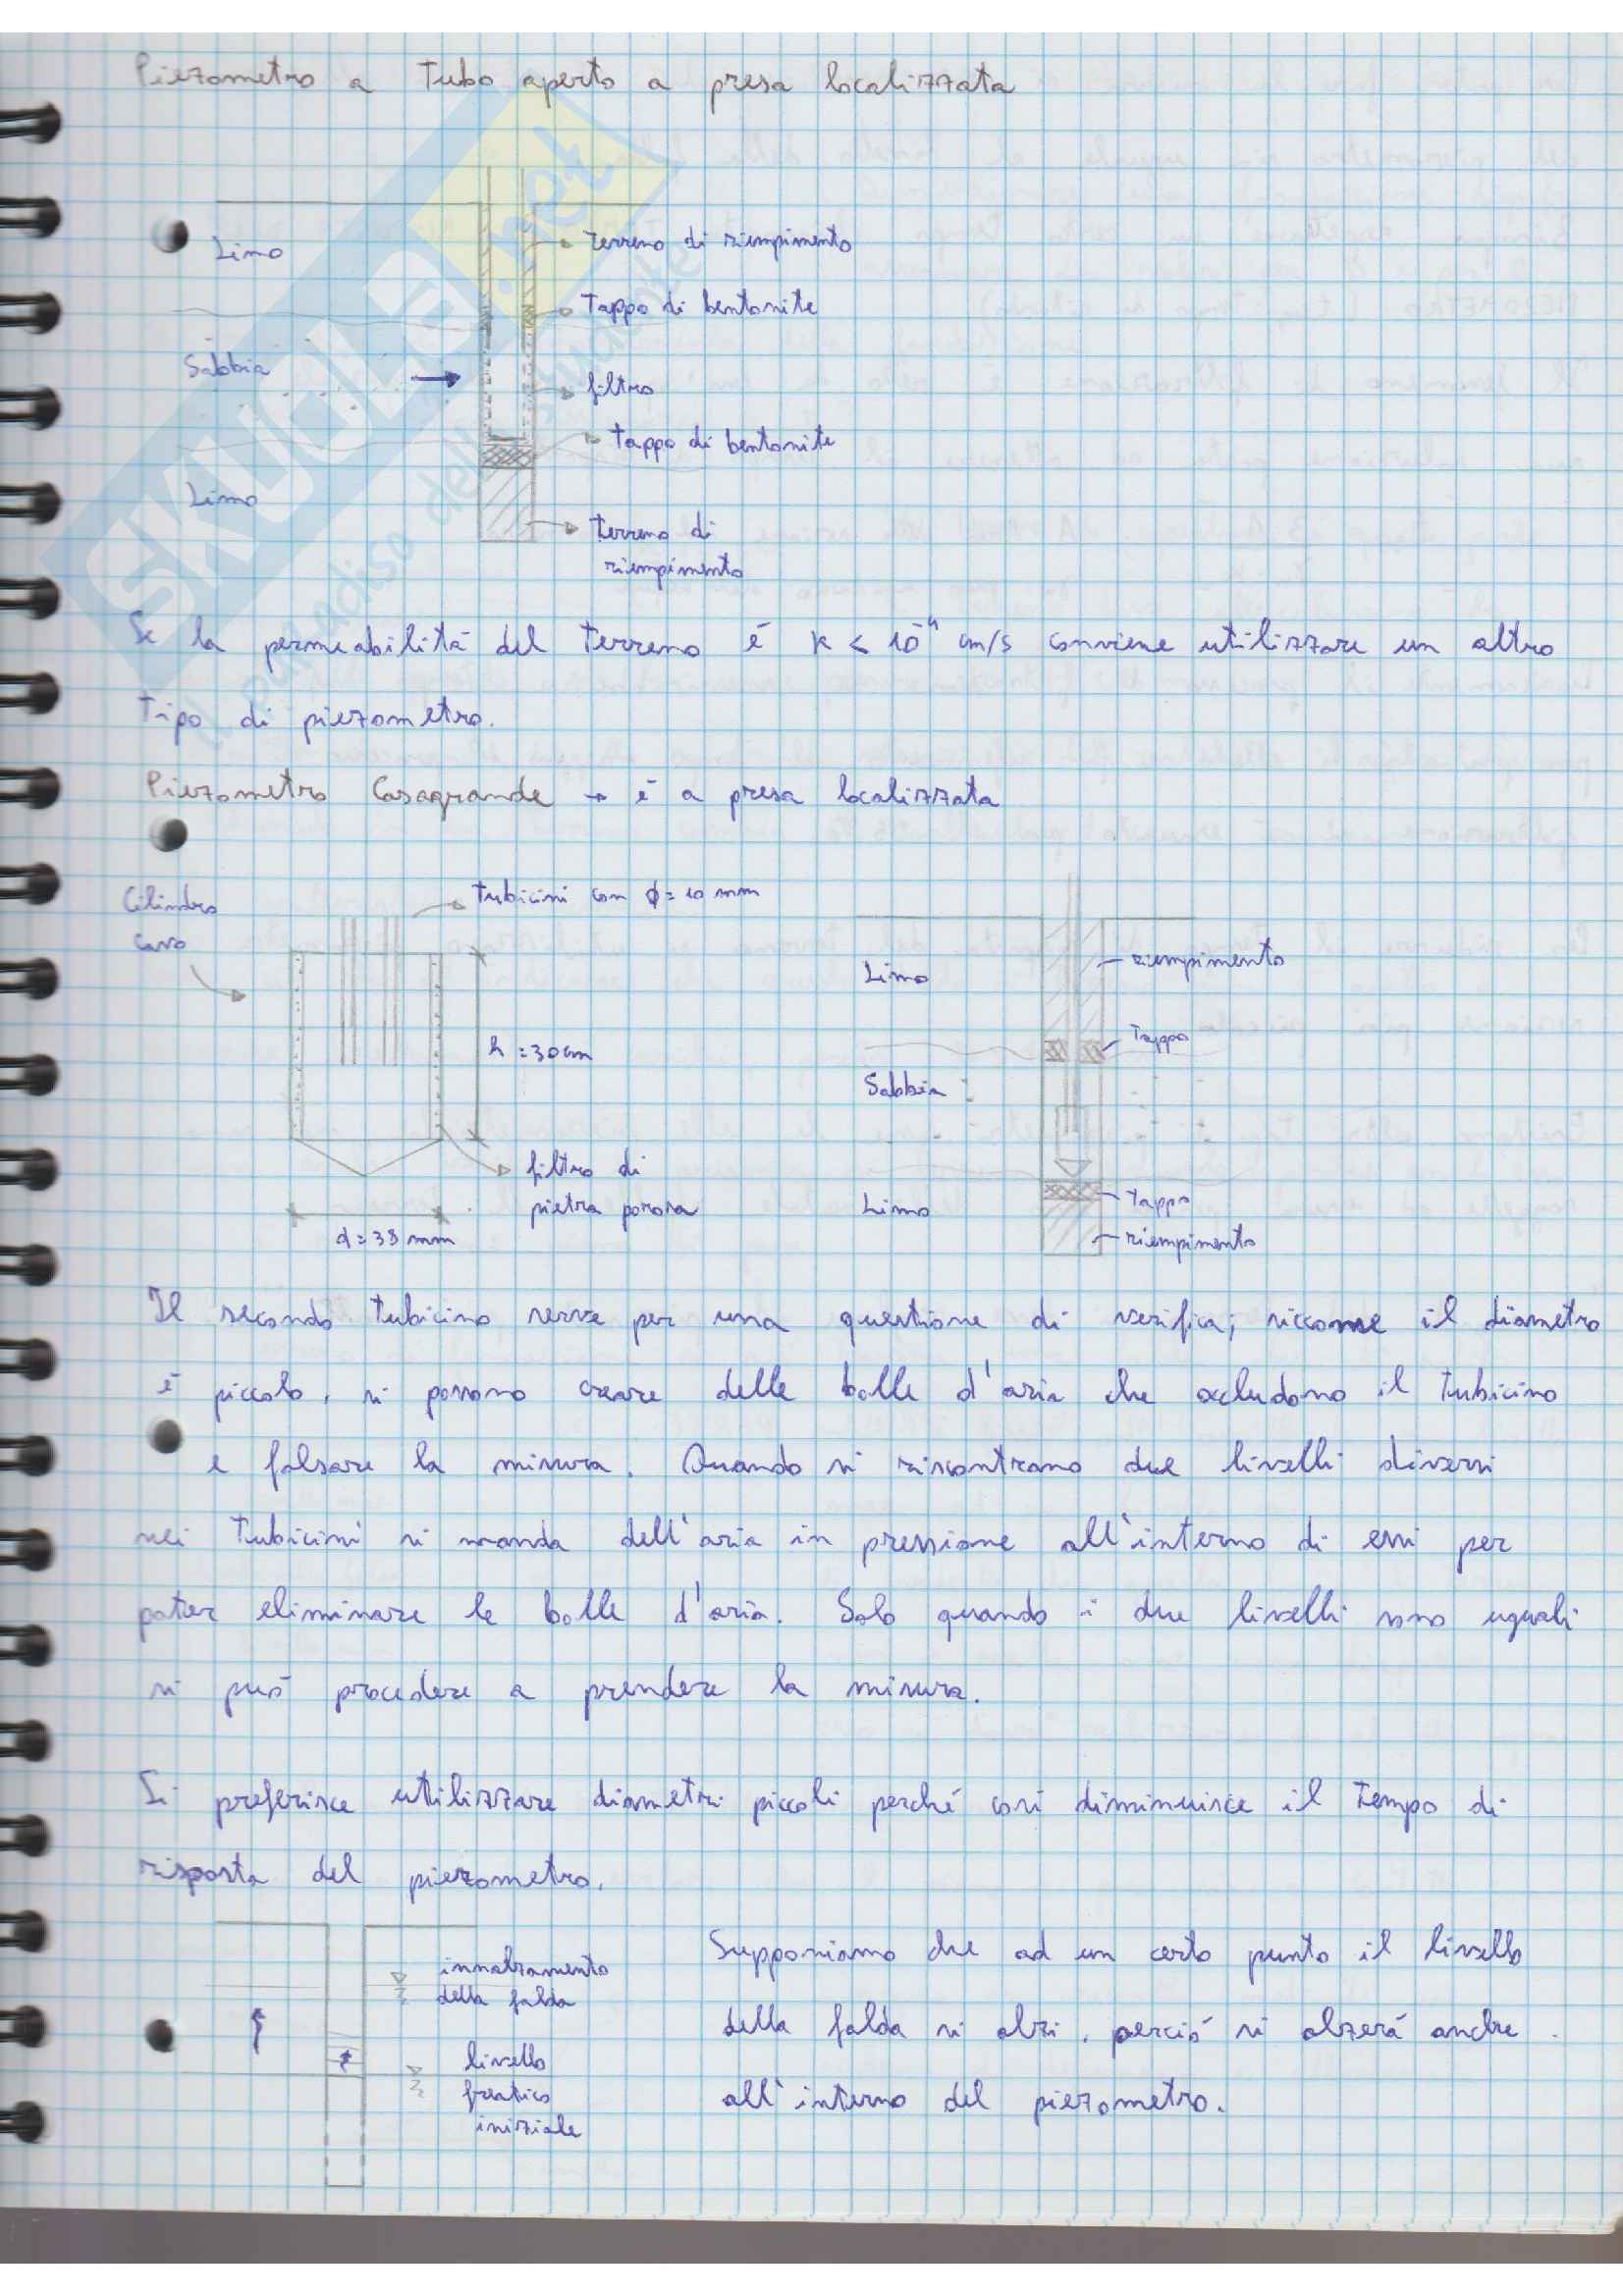 Piezometro a Tubo aperto a presa localizzata
Limo
terreno di riempimento
Tappo di bentonite
Sabbia
filtro
tappo di bentonite
Limo
terreno di
riempimento
SKUOLA.net
il paradiso dello studente
Se la permeabilità del terreno è K < 10⁻⁴ cm/s conviene utilizzare un altro
tipo di piezometro.
Piezometro Casagrande → è a presa localizzata
Cilindro
cavo
tubicini con ϕ = 10 mm
h = 30 cm
filtro di
pietra porosa
d = 38 mm
Limo
riempimento
Tappo
Sabbia
Limo
Tappo
riempimento
Il secondo tubicino serve per una questione di verifica; siccome il diametro
è piccolo, si possono creare delle bolle d'aria che occludono il tubicino
e falsare la misura. Quando si riscontrano due livelli diversi
nei tubicini si manda dell'aria in pressione all'interno di essi per
poter eliminare le bolle d'aria. Solo quando i due livelli sono uguali
si può procedere a prendere la misura.
Si preferisce utilizzare diametri piccoli perché così diminuisce il tempo di
risposta del piezometro.
innalzamento
della falda
livello
freatico
iniziale
Supponiamo che ad un certo punto il livello
della falda si alzi, perciò si alzerà anche
all'interno del piezometro.